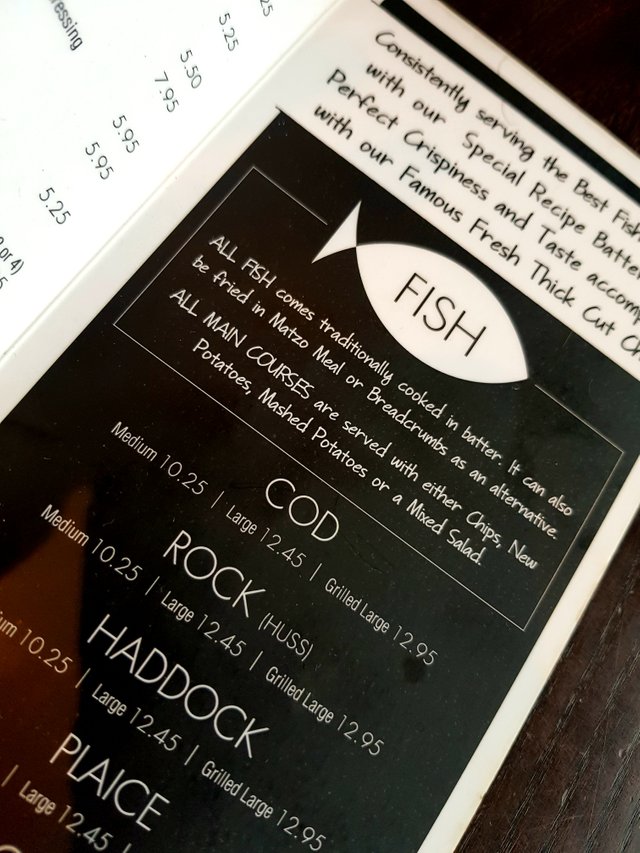 ressing
5.25
5.50
7.95
5.95
5.95
5.25
or 4)
Consistently serving the Best Fish
with our Special Recipe Batter
Perfect Crispiness and Taste
with our Famous Fresh Thick Cut
FISH
ALL FISH comes traditionally cooked in batter. It can also
be fried in Matzo Meal or Breadcrumbs as an alternative.
ALL MAIN COURSES are served with either Chips, New
Potatoes, Mashed Potatoes or a Mixed Salad.
COD
Medium 10.25 | Large 12.45 | Grilled Large 12.95
ROCK (HUSS)
Medium 10.25 | Large 12.45 | Grilled Large 12.95
HADDOCK
um 10.25 | Large 12.45 | Grilled Large 12.95
PLAICE
| Large 12.45 |